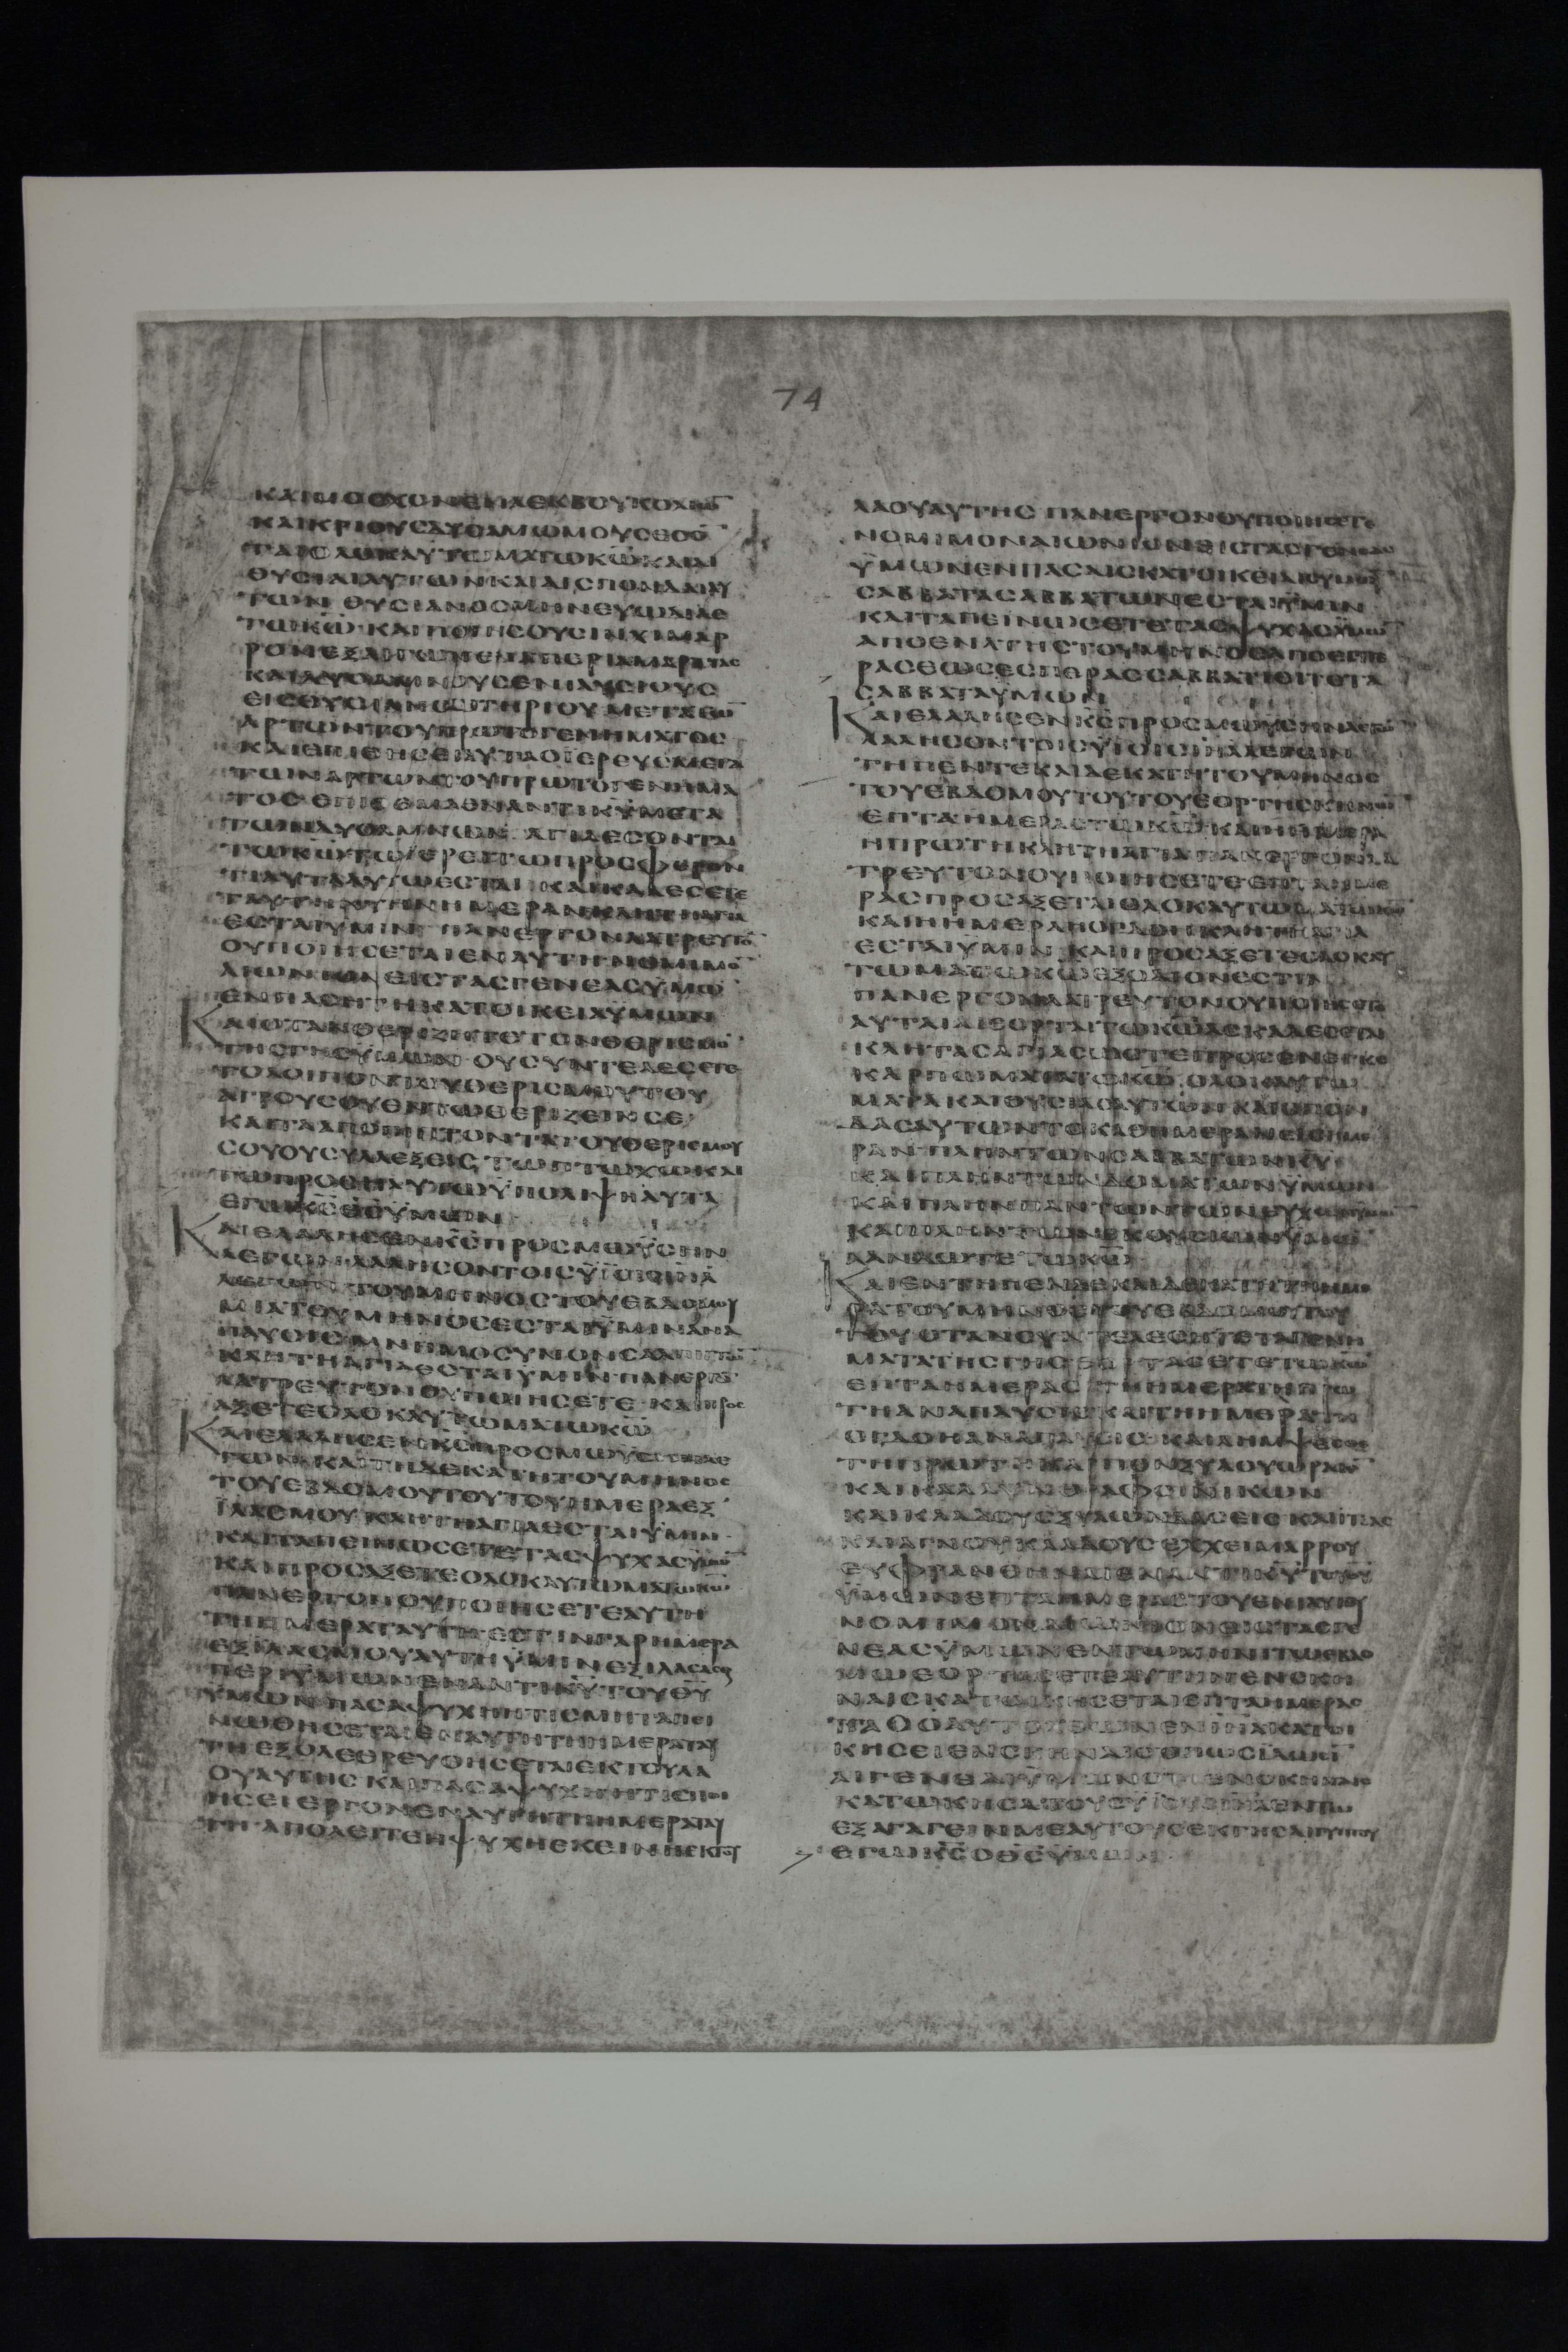 74
ΚΑΙΜΟΣΧΟΝΕΝΑΕΚΒΟΥΚΟΛΙΩ̅
ΚΑΙΚΡΙΟΥΣΔΥΟΑΜΩΜΟΥΣΕΣΟ̅
ΤΑΙΟΛΟΚΑΥΤΩΜΑΤΩΚΩ̅ΚΑΙΑΙ
ΘΥΣΙΑΙΑΥΤΩΝΚΑΙΑΙΣΠΟΝΔΑΙΑΥ
ΤΩΝ ΘΥΣΙΑΝΟΣΜΗΝΕΥΩΔΙΑΣ
ΤΩΚΩ̅ ΚΑΙΠΟΙΗΣΟΥΣΙΝΧΙΜΑΡ
ΡΟΝΕΞΑΙΓΩΝΕΝΑΠΕΡΙΑΜΑΡΤΙΑΣ
ΚΑΙΔΥΟΑΜΝΟΥΣΕΝΙΑΥΣΙΟΥΣ
ΕΙΣΘΥΣΙΑΝΣΩΤΗΡΙΟΥΜΕΤΑΤΩ̅
ΑΡΤΩΝΤΟΥΠΡΩΤΟΓΕΝΗΜΑΤΟΣ
ΚΑΙΕΠΙΘΗΣΕΙΑΥΤΑΟΪΕΡΕΥΣΜΕΤΑ
ΤΩΝΑΡΤΩΝΤΟΥΠΡΩΤΟΓΕΝΗΜΑ
ΤΟΣ ΕΠΙΘΕΜΑΕΝΑΝΤΙΚΥ̅ΜΕΤΑ
ΤΩΝΔΥΟΑΜΝΩΝ ΑΓΙΑΕΣΟΝΤΑΙ
ΤΩΚΩ̅ΤΩΪΕΡΕΙΤΩΠΡΟΣΦΕΡΟΝ
ΤΙΑΥΤΑΑΥΤΩΕΣΤΑΙ ΚΑΙΚΑΛΕΣΕΤΕ
ΤΑΥΤΗΝΤΗΝΗΜΕΡΑΝΚΛΗΤΗΑΓΙΑ
ΕΣΤΑΙΫΜΙΝ ΠΑΝΕΡΓΟΝΛΑΤΡΕΥΤΟ̅
ΟΥΠΟΙΗΣΕΤΑΙΕΝΑΥΤΗΝΟΜΙΜΟ̅
ΑΙΩΝΙΟΝΕΙΣΤΑΣΓΕΝΕΑΣΫΜΩ̅
ΕΝΠΑΣΗΤΗΚΑΤΟΙΚΕΙΑΫΜΩΝ
ΚΑΙΟΤΑΝΘΕΡΙΖΗΤΕΤΟΝΘΕΡΙΣΜΟ̅
ΤΗΣΓΗΣΫΜΩΝ ΟΥΣΥΝΤΕΛΕΣΕΤΕ
ΤΟΛΟΙΠΟΝΤΟΥΘΕΡΙΣΜΟΥΤΟΥ
ΑΓΡΟΥΣΟΥΕΝΤΩΘΕΡΙΖΕΙΝΣΕ
ΚΑΙΤΑΑΠΟΠΙΠΤΟΝΤΑΤΟΥΘΕΡΙΣΜΟΥ
ΣΟΥΟΥΣΥΛΛΕΞΕΙΣ ΤΩΠΤΩΧΩΚΑΙ
ΤΩΠΡΟΣΗΛΥΤΩΫΠΟΛΙΨΗΑΥΤΑ
ΕΓΩΚΣ̅ΟΘΣ̅ΫΜΩΝ
ΚΑΙΕΛΑΛΗΣΕΝΚΣ̅ΠΡΟΣΜΩΫΣΗΝ
ΛΕΓΩΝΛΑΛΗΣΟΝΤΟΙΣΫΪΟΙΣΙΗ̅Λ̅
ΛΕΓΩΝ ΤΟΥΜΗΝΟΣΤΟΥΕΒΔΟΜΟΥ
ΜΙΑΤΟΥΜΗΝΟΣΕΣΤΑΙΫΜΙΝΑΝΑ
ΠΑΥΣΙΣΜΝΗΜΟΣΥΝΟΝΣΑΛΠΙΓΓΩ̅
ΚΛΗΤΗΑΓΙΑΕΣΤΑΙΫΜΙΝΠΑΝΕΡΓΟ̅
ΛΑΤΡΕΥΤΟΝΟΥΠΟΙΗΣΕΤΕ ΚΑΙΠΡΟΣ
ΑΞΕΤΕΟΛΟΚΑΥΤΩΜΑΤΩΚΩ̅
ΚΑΙΕΛΑΛΗΣΕΝΚΣ̅ΠΡΟΣΜΩΫΣΗΝΛΕ
ΓΩΝ ΚΑΙΤΗΔΕΚΑΤΗΤΟΥΜΗΝΟΣ
ΤΟΥΕΒΔΟΜΟΥΤΟΥΤΟΥΗΜΕΡΑΕΞ
ΪΛΑΣΜΟΥΚΛΗΤΗΑΓΙΑΕΣΤΑΙΫΜΙΝ
ΚΑΙΤΑΠΕΙΝΩΣΕΤΕΤΑΣΨΥΧΑΣΫΜΩ̅
ΚΑΙΠΡΟΣΑΞΕΤΕΟΛΟΚΑΥΤΩΜΑΤΩΚΩ̅
ΠΑΝΕΡΓΟΝΟΥΠΟΙΗΣΕΤΕΑΥΤΗ
ΤΗΗΜΕΡΑΤΑΥΤΗΕΣΤΙΝΓΑΡΗΜΕΡΑ
ΕΞΙΛΑΣΜΟΥΑΥΤΗΫΜΙΝΕΞΙΛΑΣΑΣΘΑΙ
ΠΕΡΙΫΜΩΝΕΝΑΝΤΙΚΥ̅ΤΟΥΘΥ̅
ΫΜΩΝΠΑΣΑΨΥΧΗΗΤΙΣΜΗΤΑΠΕΙ
ΝΩΘΗΣΕΤΑΙΕΝΑΥΤΗΤΗΗΜΕΡΑΤΑΥ
ΤΗΕΞΟΛΕΘΡΕΥΘΗΣΕΤΑΙΕΚΤΟΥΛΑ
ΟΥΑΥΤΗΣ ΚΑΙΠΑΣΑΨΥΧΗΗΤΙΣΠΟΙ
ΗΣΕΙΕΡΓΟΝΕΝΑΥΤΗΤΗΗΜΕΡΑΤΑΥ
ΤΗΑΠΟΛΕΙΤΕΗΨΥΧΗΕΚΕΙΝΗΕΚΤΟΥ
ΛΑΟΥΑΥΤΗΣ ΠΑΝΕΡΓΟΝΟΥΠΟΙΗΣΕΤΕ
ΝΟΜΙΜΟΝΑΙΩΝΙΟΝΕΙΣΤΑΣΓΕΝΕΑΣ
ΫΜΩΝΕΝΠΑΣΑΙΣΚΑΤΟΙΚΕΙΑΙΣΫΜΩ̅
ΣΑΒΒΑΤΑΣΑΒΒΑΤΩΝΕΣΤΑΙΫΜΙΝ
ΚΑΙΤΑΠΕΙΝΩΣΕΤΕΤΑΣΨΥΧΑΣΫΜΩ̅
ΑΠΟΕΝΑΤΗΣΤΟΥΜΗΝΟΣΑΠΟΕΣΠΕ
ΡΑΣΕΩΣΕΣΠΕΡΑΣΣΑΒΒΑΤΙΕΙΤΕΤΑ
ΣΑΒΒΑΤΑΥΜΩΝ
ΚΑΙΕΛΑΛΗΣΕΝΚΣ̅ΠΡΟΣΜΩΥΣΗΝΛΕΓΩ̅
ΛΑΛΗΣΟΝΤΟΙΣΫΪΟΙΣΙΗ̅Λ̅ΛΕΓΩΝ
ΤΗΠΕΝΤΕΚΑΙΔΕΚΑΤΗΤΟΥΜΗΝΟΣ
ΤΟΥΕΒΔΟΜΟΥΤΟΥΤΟΥΕΟΡΤΗΣΚΗΝΩ̅
ΕΠΤΑΗΜΕΡΑΣΤΩΚΩ̅ΚΑΙΗΗΜΕΡΑ
ΗΠΡΩΤΗΚΛΗΤΗΑΓΙΑΠΑΝΕΡΓΟΝΛΑ
ΤΡΕΥΤΟΝΟΥΠΟΙΗΣΕΤΕΕΠΤΑΗΜΕ
ΡΑΣΠΡΟΣΑΞΕΤΑΙΟΛΟΚΑΥΤΩΜΑΤΩΚΩ̅
ΚΑΙΗΗΜΕΡΑΗΟΓΔΟΗΚΛΗΤΗΑΓΙΑ
ΕΣΤΑΙΫΜΙΝ ΚΑΙΠΡΟΣΑΞΕΤΕΟΛΟΚΑΥ
ΤΩΜΑΤΩΚΩ̅ΕΞΟΔΙΟΝΕΣΤΙΝ
ΠΑΝΕΡΓΟΝΛΑΤΡΕΥΤΟΝΟΥΠΟΙΗΣΕΤΕ
ΑΥΤΑΙΑΙΕΟΡΤΑΙΤΩΚΩ̅ΑΣΚΑΛΕΣΕΤΑΙ
ΚΛΗΤΑΣΑΓΙΑΣΩΣΤΕΠΡΟΣΕΝΕΓΚΕ
ΚΑΡΠΩΜΑΤΑΤΩΚΩ̅ ΟΛΟΚΑΥΤΩ
ΜΑΤΑΚΑΙΘΥΣΙΑΣΑΥΤΩΝΚΑΙΣΠΟΝ
ΔΑΣΑΥΤΩΝΤΟΚΑΘΗΜΕΡΑΝΕΙΣΗΜΕ
ΡΑΝ ΠΛΗΝΤΩΝΣΑΒΒΑΤΩΝΚΥ̅
ΚΑΙΠΛΗΝΤΩΝΔΟΜΑΤΩΝΫΜΩΝ
ΚΑΙΠΛΗΝΠΑΝΤΩΝΤΩΝΕΥΧΩΝΫΜΩ̅
ΚΑΙΠΛΗΝΤΩΝΕΚΟΥΣΙΩΝΫΜΩ̅
ΑΑΝΔΩΤΕΤΩΚΩ̅
ΚΑΙΕΝΤΗΠΕΝΤΕΚΑΙΔΕΚΑΤΗΗΜΕ
ΡΑΤΟΥΜΗΝΟΣΤΟΥΕΒΔΟΜΟΥΤΟΥ
ΤΟΥΟΤΑΝΣΥΝΤΕΛΕΣΗΤΕΤΑΓΕΝΗ
ΜΑΤΑΤΗΣΓΗΣΕΟΡΤΑΣΕΤΕΤΩΚΩ̅
ΕΠΤΑΗΜΕΡΑΣ ΤΗΗΜΕΡΑΤΗΠΡΩ
ΤΗΑΝΑΠΑΥΣΙΣΚΑΙΤΗΗΜΕΡΑΤΗ
ΟΓΔΟΗΑΝΑΠΑΥΣΙΣ ΚΑΙΛΗΜΨΕΣΘΕ
ΤΗΠΡΩΤΗΚΑΡΠΟΝΞΥΛΟΥΩΡΑΙΟ̅
ΚΑΙΚΑΛΛΥΝΘΡΑΦΟΙΝΙΚΩΝ
ΚΑΙΚΛΑΔΟΥΣΞΥΛΩΝΔΑΣΕΙΣ ΚΑΙΙΤΕΑΣ
ΚΑΙΑΓΝΟΥΚΛΑΔΟΥΣΕΚΧΕΙΜΑΡΡΟΥ
ΕΥΦΡΑΝΘΗΝΑΙΕΝΑΝΤΙΚΥ̅ΤΟΥΘΥ̅
ΫΜΩΝΕΠΤΑΗΜΕΡΑΣΤΟΥΕΝΙΑΥΤΟΥ
ΝΟΜΙΜΟΝΑΙΩΝΙΟΝΕΙΣΤΑΣΓΕ
ΝΕΑΣΫΜΩΝΕΝΤΩΜΗΝΙΤΩΕΒΔΟ
ΜΩΕΟΡΤΑΣΕΤΕΑΥΤΗΝΕΝΣΚΗ
ΝΑΙΣΚΑΤΟΙΚΗΣΕΤΑΙΕΠΤΑΗΜΕΡΑΣ
ΠΑΣΟΑΥΤΟΧΘΩΝΕΝΙΗ̅Λ̅ΚΑΤΟΙ
ΚΗΣΕΙΕΝΣΚΗΝΑΙΣΟΠΩΣΪΔΩΣΙ̅
ΑΙΓΕΝΕΑΙΫΜΩΝΟΤΙΕΝΣΚΗΝΑΙΣ
ΚΑΤΩΚΗΣΑΤΟΥΣΫΪΟΥΣΙΗ̅Λ̅ΕΝΤΩ
ΕΞΑΓΑΓΕΙΝΜΕΑΥΤΟΥΣΕΚΓΗΣΑΙΓΥΠΤΟΥ
ΕΓΩΚΣ̅ΟΘΣ̅ΫΜΩΝ